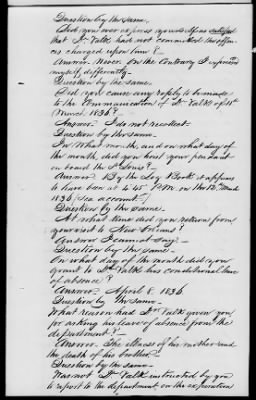 Question by the same.
Did you ever express yourself as satisfied
that Lt. Falk had not committed the offen-
ces charged upon him?
Answer. Never. On the Contrary I expressed
myself differently.
Question by the same.
Did you cause any reply to be made
to the Communication of Lt. Falk of 1st
March 1836?
Answer. I do not recollect.
Question by the same.
In What month, and on what day of
the month, did you hoist your pendant
on board the
Answer. By the Log Book it appears
to have been at 4.45 P.M. on the 12. March
1836, sea account.
Question by the same.
At what time did you return from
your visit to New Orleans?
Answer I cannot say.
Question by the same.
On what day of the month did you
grant to Lt. Falk his conditional leave
of absence?
Answer April 8. 1836
Question by the same
What reason had Lt. Falk given you
for asking his leave of absence from the
department?
Answer. The illness of his mother and
the death of his brother.
Question by the same
Was not Lt. Falk instructed by you
to report to the department on the expiration